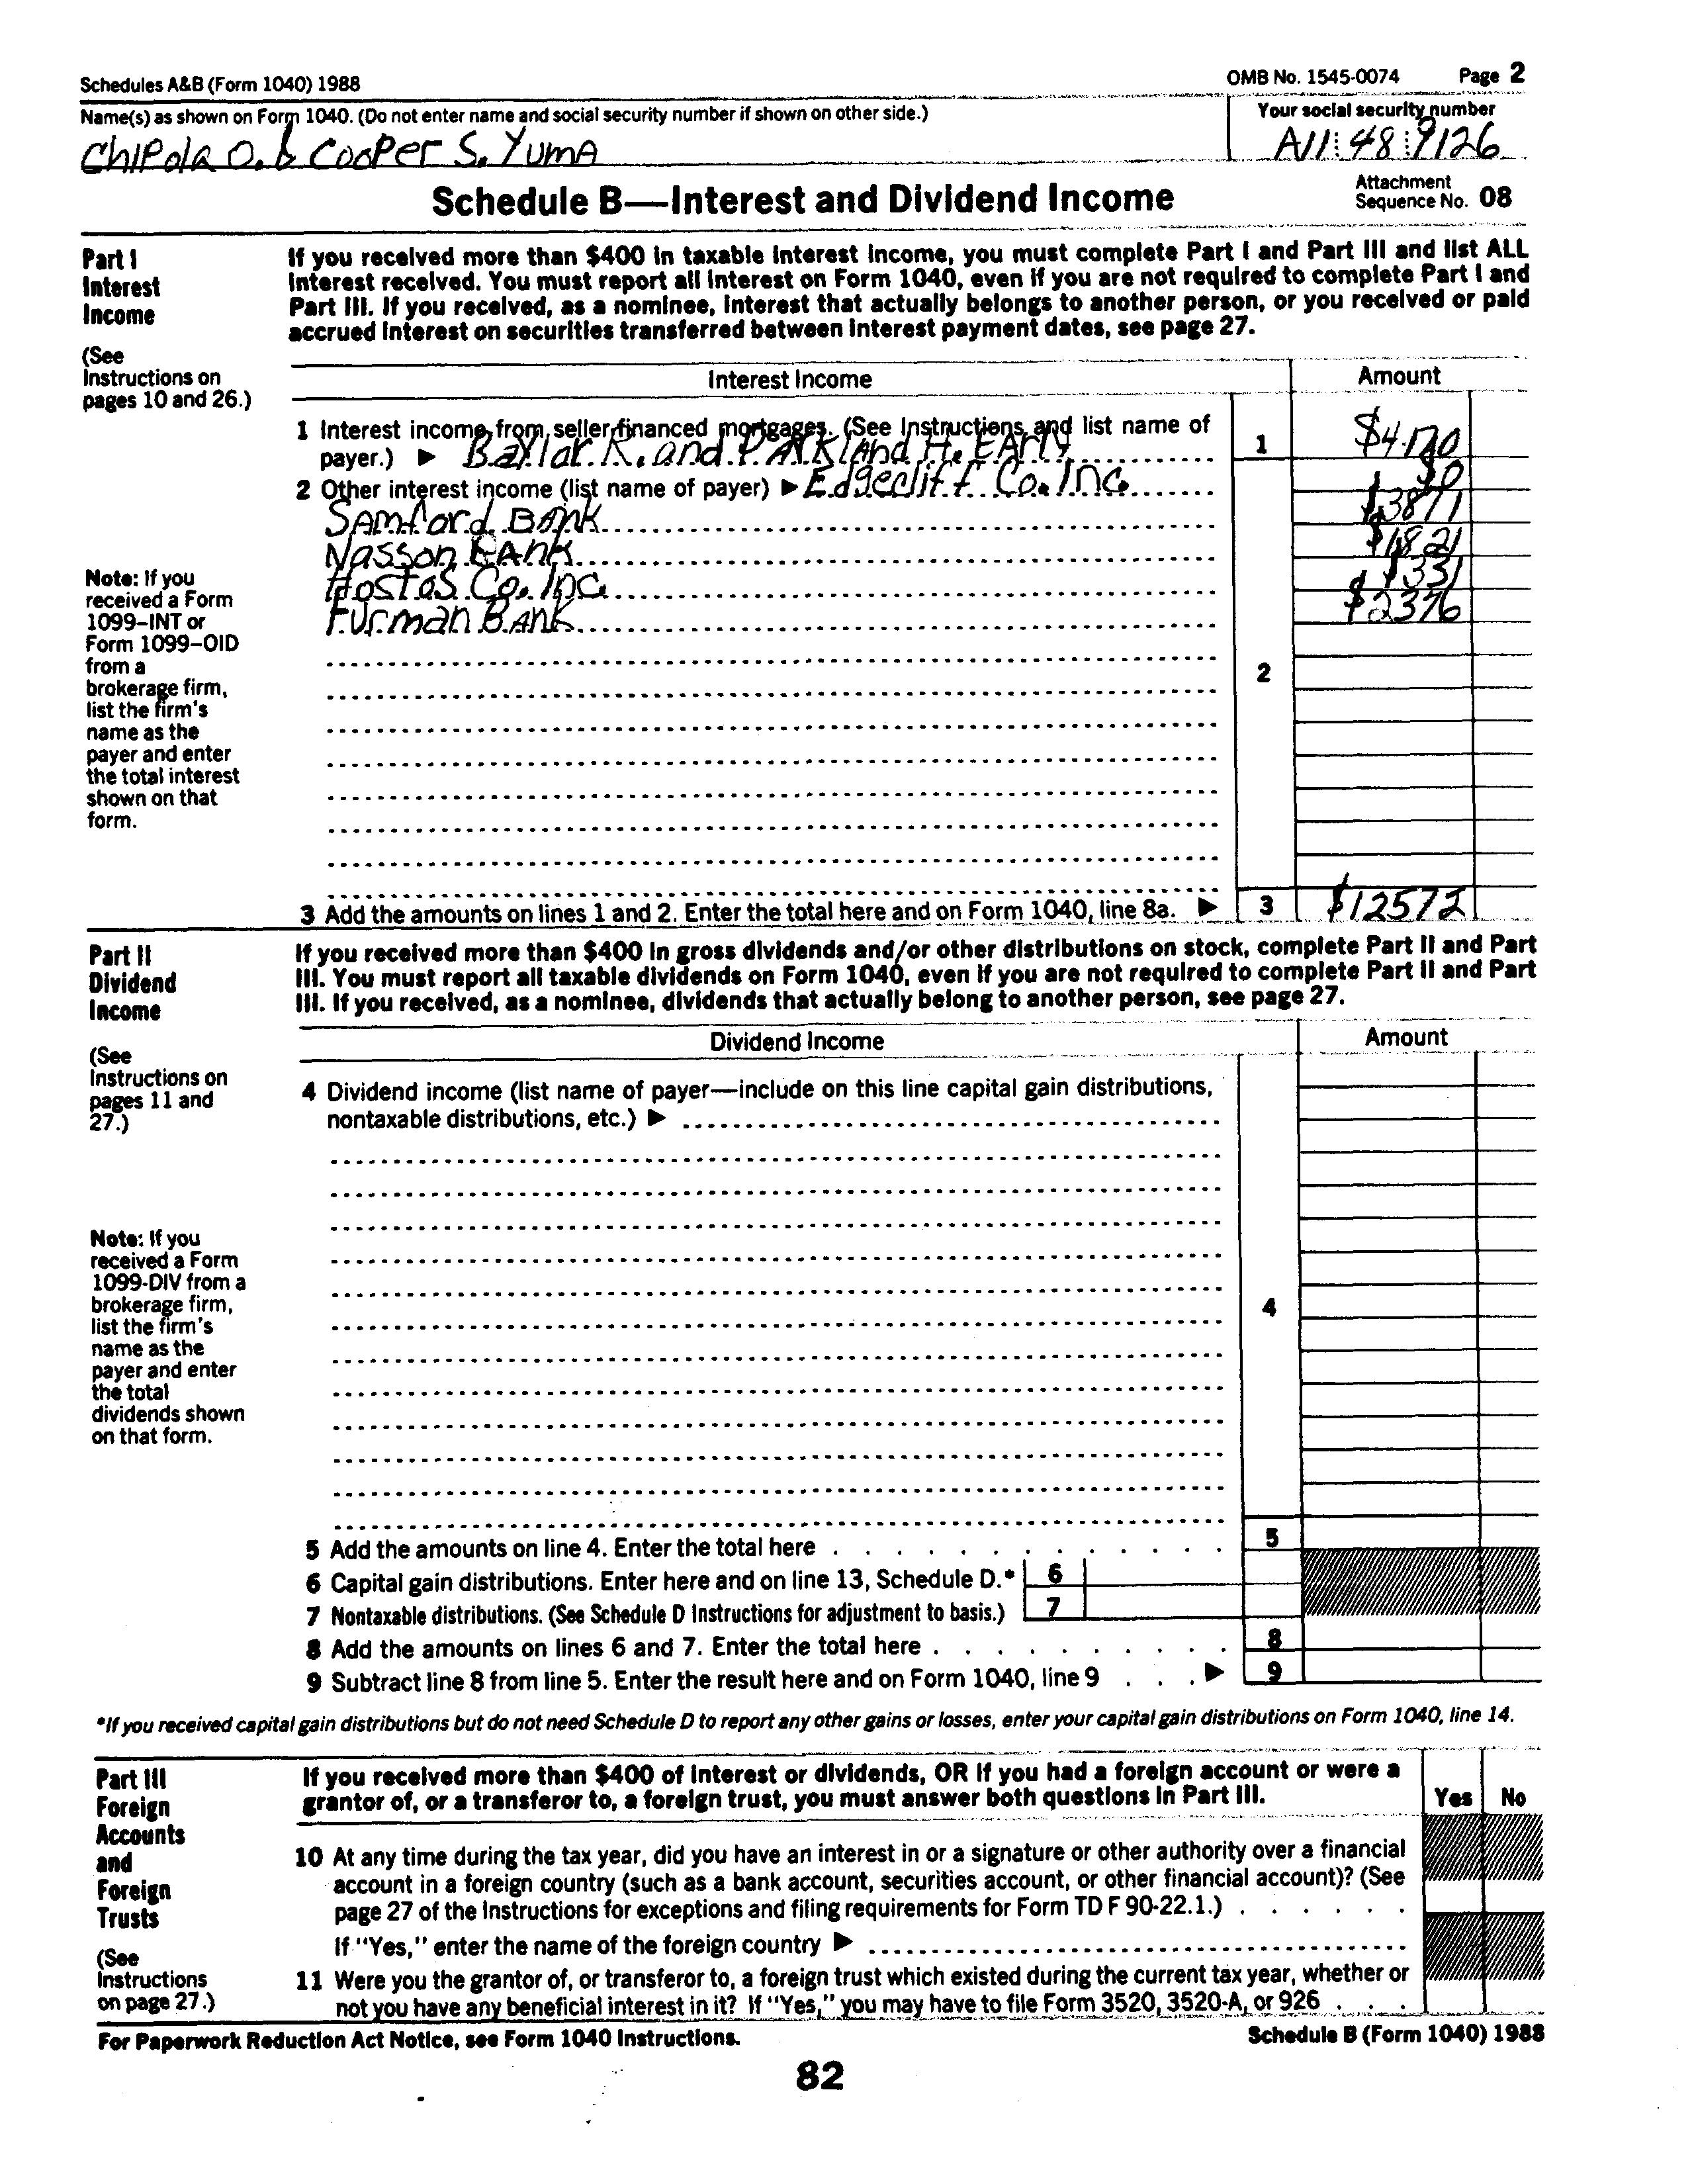 Schedules A&B (Form 1040) 1988
OMB No. 1545-0074 Page 2
Name(s) as shown on Form 1040. (Do not enter name and social security number if shown on other side.)
Your social security number
Chipola O. & Cooper S. Yuma
A11 48 9126
Schedule B—Interest and Dividend Income
Attachment
Sequence No. 08
Part I
Interest
Income
(See
Instructions on
pages 10 and 26.)
If you received more than $400 in taxable interest income, you must complete Part I and Part III and list ALL
interest received. You must report all interest on Form 1040, even if you are not required to complete Part I and
Part III. If you received, as a nominee, interest that actually belongs to another person, or you received or paid
accrued interest on securities transferred between interest payment dates, see page 27.
Interest Income Amount
1 Interest income from seller-financed mortgages. (See Instructions and list name of
payer.) ▶ Baylor R. and Parkland H. Early 1 $4170
2 Other interest income (list name of payer) ▶ Edgecliff Co. Inc. $0
Samford Bank $3871
Nasson Bank $1821
Hostos Co. Inc. $331
Furman Bank $2376
2
Note: If you
received a Form
1099-INT or
Form 1099-OID
from a
brokerage firm,
list the firm's
name as the
payer and enter
the total interest
shown on that
form.
3 Add the amounts on lines 1 and 2. Enter the total here and on Form 1040, line 8a. ▶ 3 $12572
Part II
Dividend
Income
(See
Instructions on
pages 11 and
27.)
If you received more than $400 in gross dividends and/or other distributions on stock, complete Part II and Part
III. You must report all taxable dividends on Form 1040, even if you are not required to complete Part II and Part
III. If you received, as a nominee, dividends that actually belong to another person, see page 27.
Dividend Income Amount
4 Dividend income (list name of payer—include on this line capital gain distributions,
nontaxable distributions, etc.) ▶
4
Note: If you
received a Form
1099-DIV from a
brokerage firm,
list the firm's
name as the
payer and enter
the total
dividends shown
on that form.
5 Add the amounts on line 4. Enter the total here 5
6 Capital gain distributions. Enter here and on line 13, Schedule D.* 6
7 Nontaxable distributions. (See Schedule D Instructions for adjustment to basis.) 7
8 Add the amounts on lines 6 and 7. Enter the total here 8
9 Subtract line 8 from line 5. Enter the result here and on Form 1040, line 9 ▶ 9
*If you received capital gain distributions but do not need Schedule D to report any other gains or losses, enter your capital gain distributions on Form 1040, line 14.
Part III
Foreign
Accounts
and
Foreign
Trusts
(See
Instructions
on page 27.)
If you received more than $400 of interest or dividends, OR if you had a foreign account or were a
grantor of, or a transferor to, a foreign trust, you must answer both questions in Part III.
Yes No
10 At any time during the tax year, did you have an interest in or a signature or other authority over a financial
account in a foreign country (such as a bank account, securities account, or other financial account)? (See
page 27 of the Instructions for exceptions and filing requirements for Form TD F 90-22.1.)
If "Yes," enter the name of the foreign country ▶
11 Were you the grantor of, or transferor to, a foreign trust which existed during the current tax year, whether or
not you have any beneficial interest in it? If "Yes," you may have to file Form 3520, 3520-A, or 926
For Paperwork Reduction Act Notice, see Form 1040 Instructions.
Schedule B (Form 1040) 1988
82